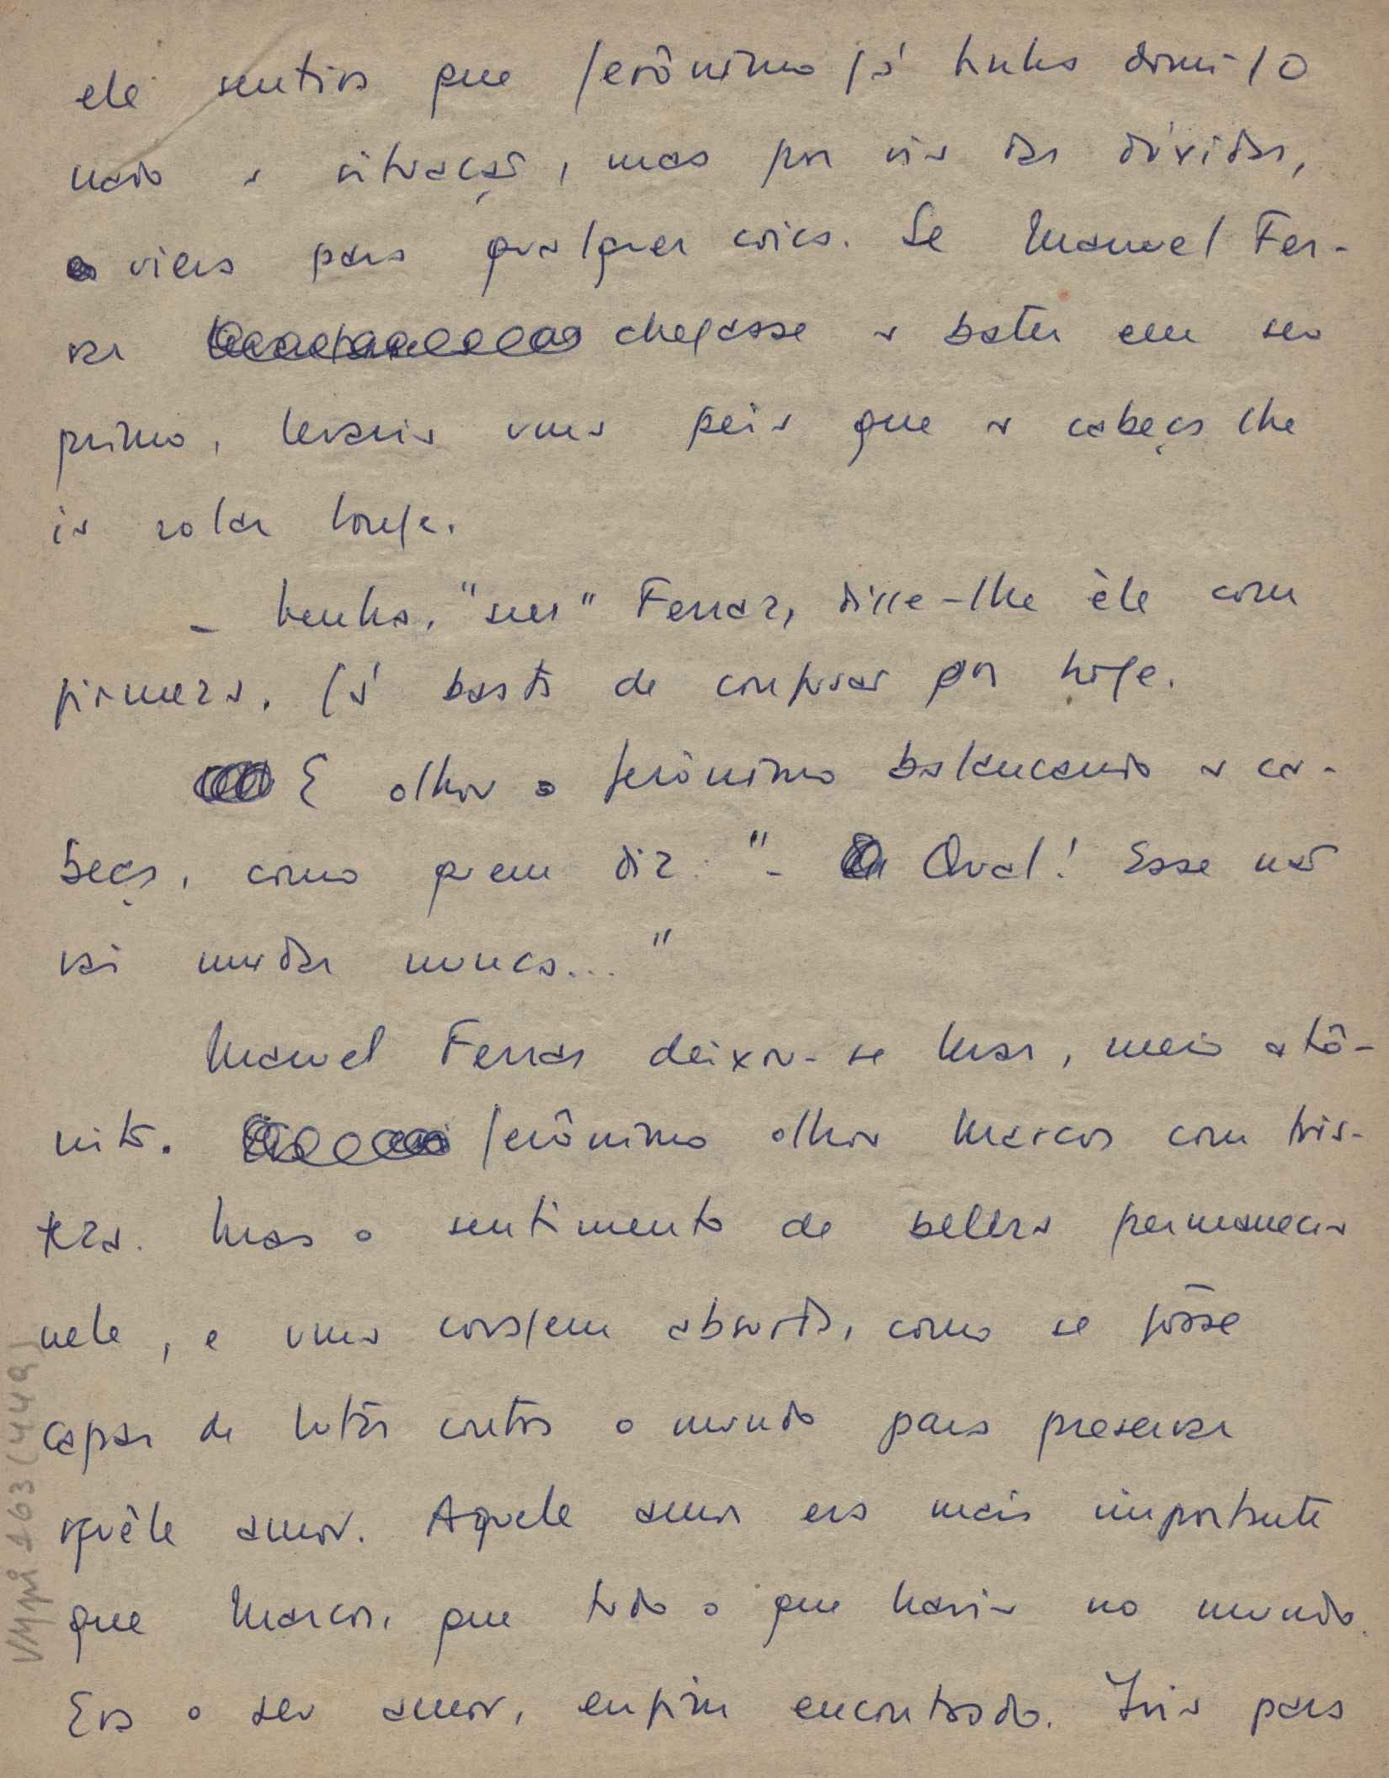 ele sentira que Jerônimo já tinha domi- 10
nado a situação, mas por via das dúvidas,
viera para qualquer coisa. Se Manuel Fer-
raz chegasse a bater em seu
primo, levaria uma peia que a cabeça lhe
ia rolar longe.
– Venha, "seu" Ferraz, disse-lhe êle com
firmeza. Já basta de confusão por hoje.
E olhou o Jerônimo balançando a ca-
beça, como quem diz: "– Qual! Esse não
vai mudar nunca..."
Manuel Ferraz deixou-se levar, meio atô-
nito. Jerônimo olhou Marcos com tris-
teza. Mas o sentimento de beleza permanecia
nele, e uma coragem absurda, como se fôsse
capaz de lutar contra o mundo para preservar
aquêle amor. Aquele amor era mais importante
que Marcos, que tudo o que havia no mundo.
Era o seu amor, enfim encontrado. Iria para
VMpi 163 (449)